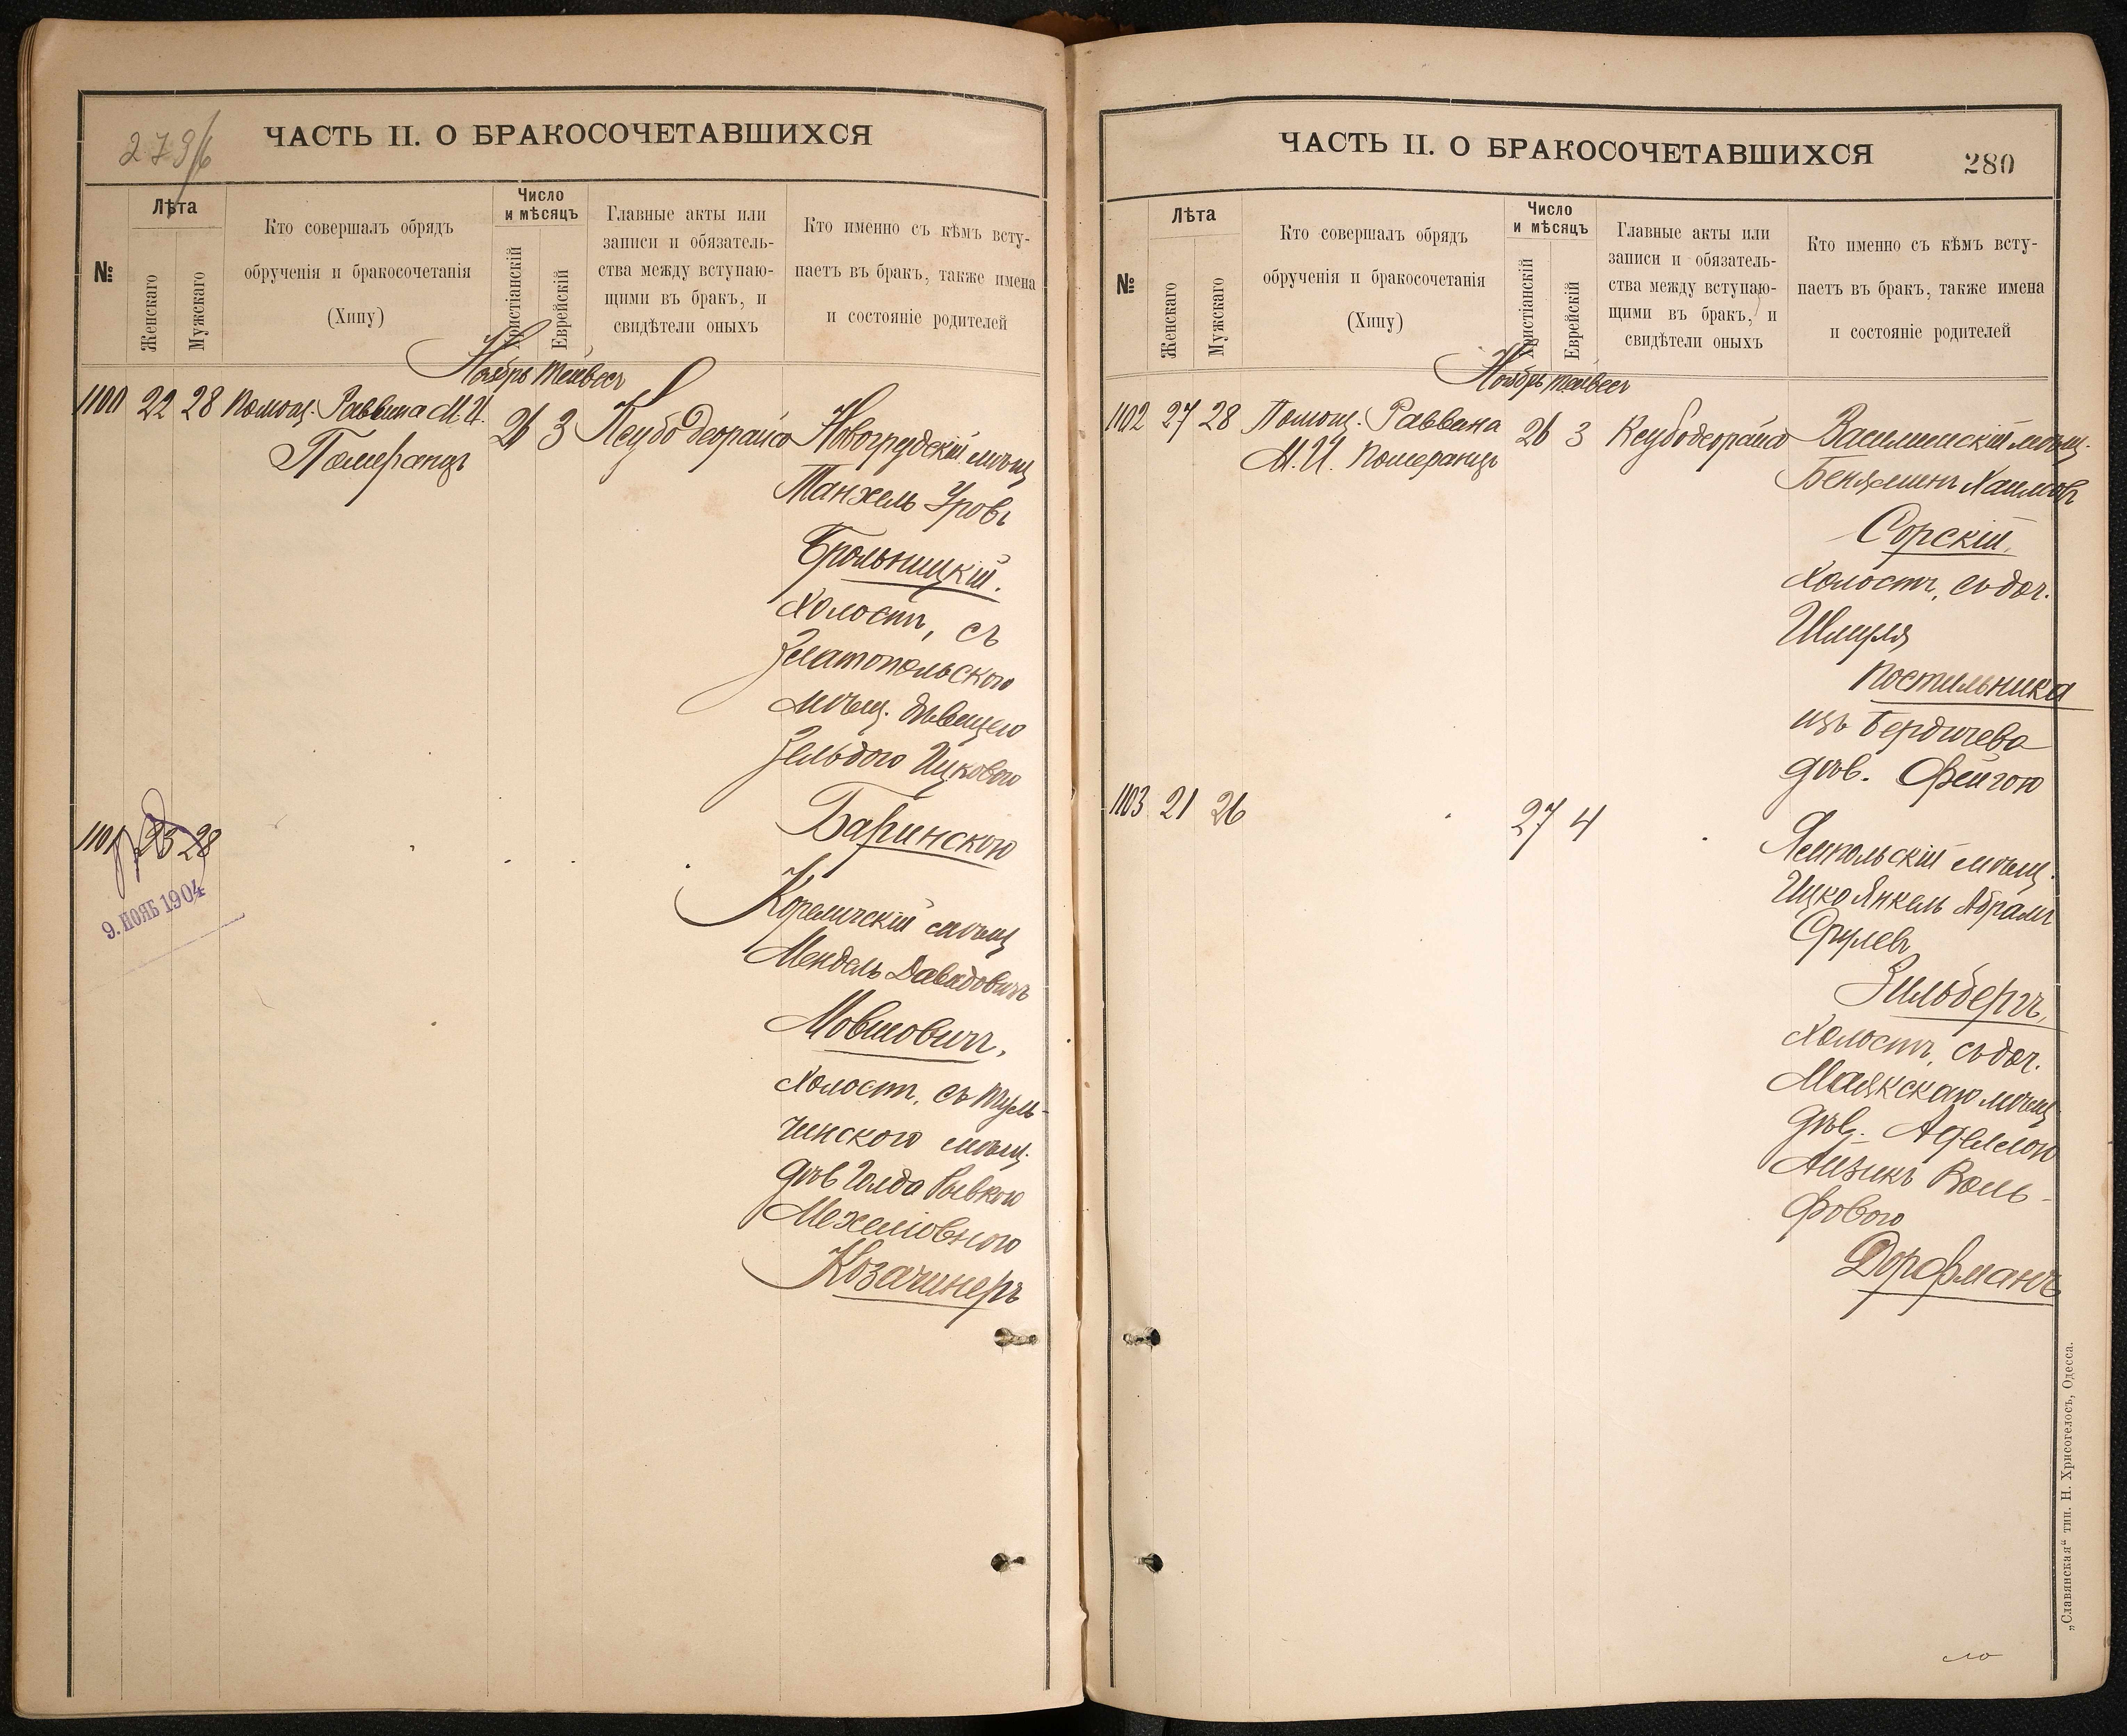 279/б
ЧАСТЬ II. О БРАКОСОЧЕТАВШИХСЯ
№
Лѣта
Женскаго
Мужскаго
Кто совершалъ обрядъ
обрученія и бракосочетанія
(Хипу)
Число
и мѣсяцъ
Христіанскій
Еврейскій
Главные акты или
записи и обязатель-
ства между вступаю-
щими въ бракъ, и
свидѣтели оныхъ
Кто именно съ кѣмъ всту-
паетъ въ бракъ, также имена
и состояніе родителей
Ноябрь Тейвесъ
1100 22 28 Помощ. Раввина М. И.
Померанцъ
26 3 Ксубо Деорайса
Новогрудскій мѣщ
Танхель Уровъ
Брольницкій.
Холостъ, съ
Златопольскою
мѣщ. дѣвицею
Зельдою Ицковою
Баринскою
1101 23 28
9. НОЯБ 1904
Кореличскій мѣщ
Мендель Давидовичъ
Мовшовичъ.
Холост. съ Туль-
чинскою мѣщ.
дѣв Голда Рывкою
Мехелювною
Козачинеръ
ЧАСТЬ II. О БРАКОСОЧЕТАВШИХСЯ
280
№
Лѣта
Женскаго
Мужскаго
Кто совершалъ обрядъ
обрученія и бракосочетанія
(Хипу)
Число
и мѣсяцъ
Христіанскій
Еврейскій
Главные акты или
записи и обязатель-
ства между вступаю-
щими въ бракъ, и
свидѣтели оныхъ
Кто именно съ кѣмъ всту-
паетъ въ бракъ, также имена
и состояніе родителей
Ноябрь Тейвесъ
1102 27 28 Помощ. Раввина
М. И. Померанцъ
26 3 Ксубо деорайса
Василишскій мѣщ.
Беняминъ Хаимовъ
Сорскій,
Холостъ, съ доч.
Шмуля
Постильника
изъ Бердичева
дѣв. Фейгою
1103 21 26 27 4
Ямпольскій мѣщ.
Ицко Янкель Абрамъ
Срулевъ
Зильбергъ,
Холостъ, съ доч.
Маякскаго мѣщ.
дѣв. Аделею
Айзикъ Воль-
фовою
Дорфманъ
„Славянская“ тип. Н. Хрисогелосъ, Одесса.